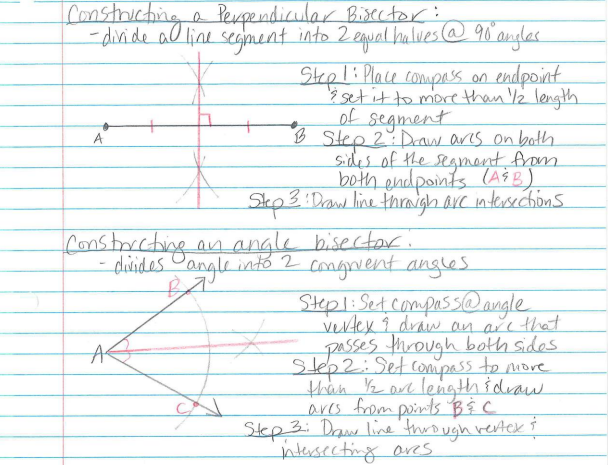 Constructing a Perpendicular Bisector:
- divide a line segment into 2 equal halves @ 90° angles
Step 1: Place compass on endpoint
& set it to more than 1/2 length
of segment
A
B
Step 2: Draw arcs on both
sides of the segment from
both endpoints (A & B)
Step 3: Draw line through arc intersections
Constructing an angle bisector:
- divides angle into 2 congruent angles
B
Step 1: Set compass @ angle
vertex & draw an arc that
A
passes through both sides
Step 2: Set compass to more
than 1/2 arc length & draw
C
arcs from points B & C
Step 3: Draw line through vertex &
intersecting arcs